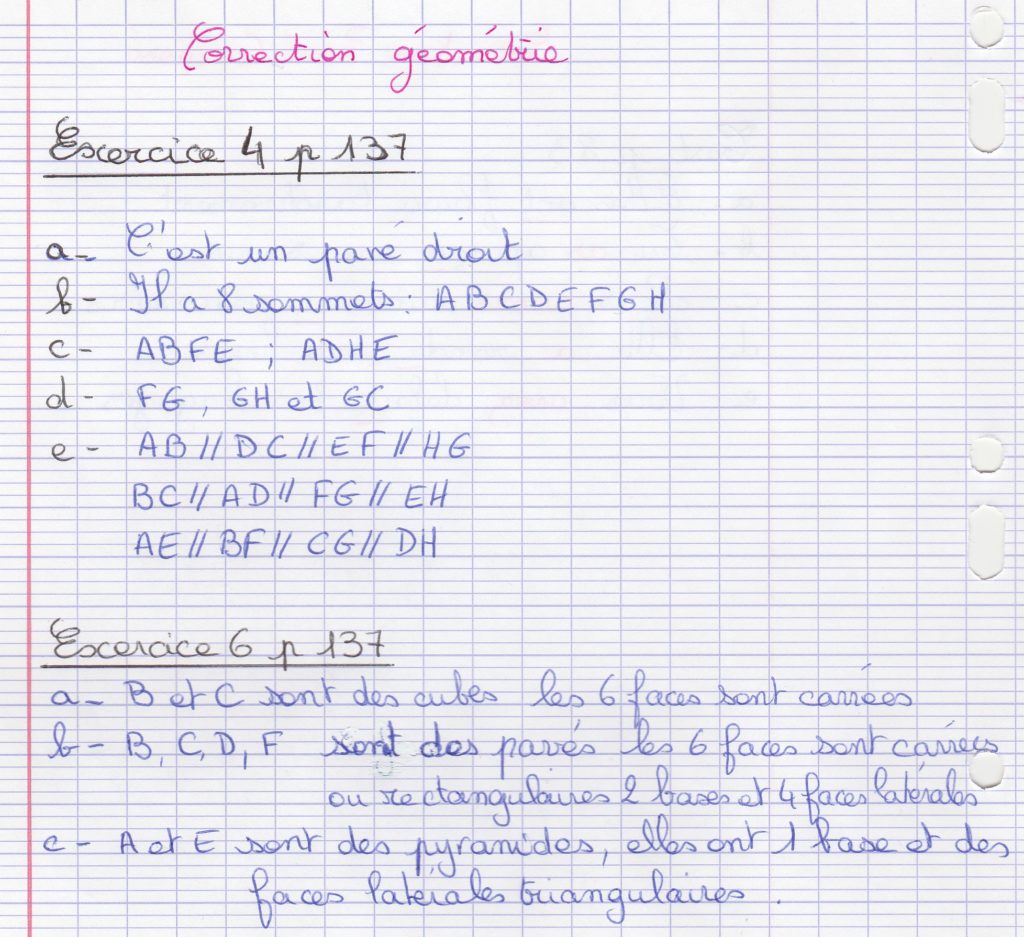 Correction géométrie
Exercice 4 p 137
a- C'est un pavé droit
b- Il a 8 sommets : A B C D E F G H
c- ABFE ; ADHE
d- FG, GH et GC
e- AB // DC // EF // HG
BC // AD // FG // EH
AE // BF // CG // DH
Exercice 6 p 137
a- B et C sont des cubes les 6 faces sont carrées
b- B, C, D, F sont des pavés les 6 faces sont carrées
ou rectangulaires 2 bases et 4 faces latérales
c- A et E sont des pyramides, elles ont 1 base et des
faces latérales triangulaires.